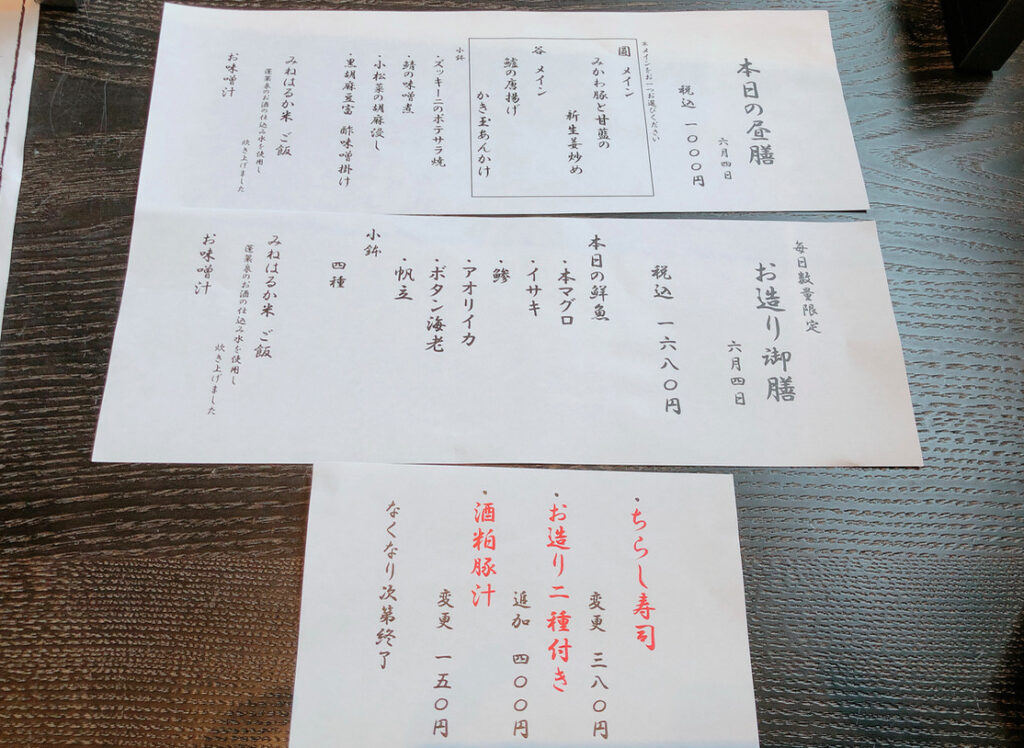 本日の昼膳
六月四日
税込 一〇〇〇円
※メインをお一つお選びください
圓 メイン
みかわ豚と甘藍の
新生姜炒め
谷 メイン
鱸の唐揚げ
かき玉あんかけ
小鉢
・ズッキーニのポテサラ焼
・鯖の味噌煮
・小松菜の胡麻浸し
・黒胡麻豆富 酢味噌掛け
みねはるか米 ご飯
蓬莱泉のお酒の仕込み水を使用し
炊き上げました
お味噌汁
毎日数量限定
お造り御膳
六月四日
税込 一六八〇円
本日の鮮魚
・本マグロ
・イサキ
・鯵
・アオリイカ
・ボタン海老
・帆立
小鉢
四種
みねはるか米 ご飯
蓬莱泉のお酒の仕込み水を使用し
炊き上げました
お味噌汁
・ちらし寿司
変更 三八〇円
・お造り二種付き
追加 四〇〇円
・酒粕豚汁
変更 一五〇円
なくなり次第終了